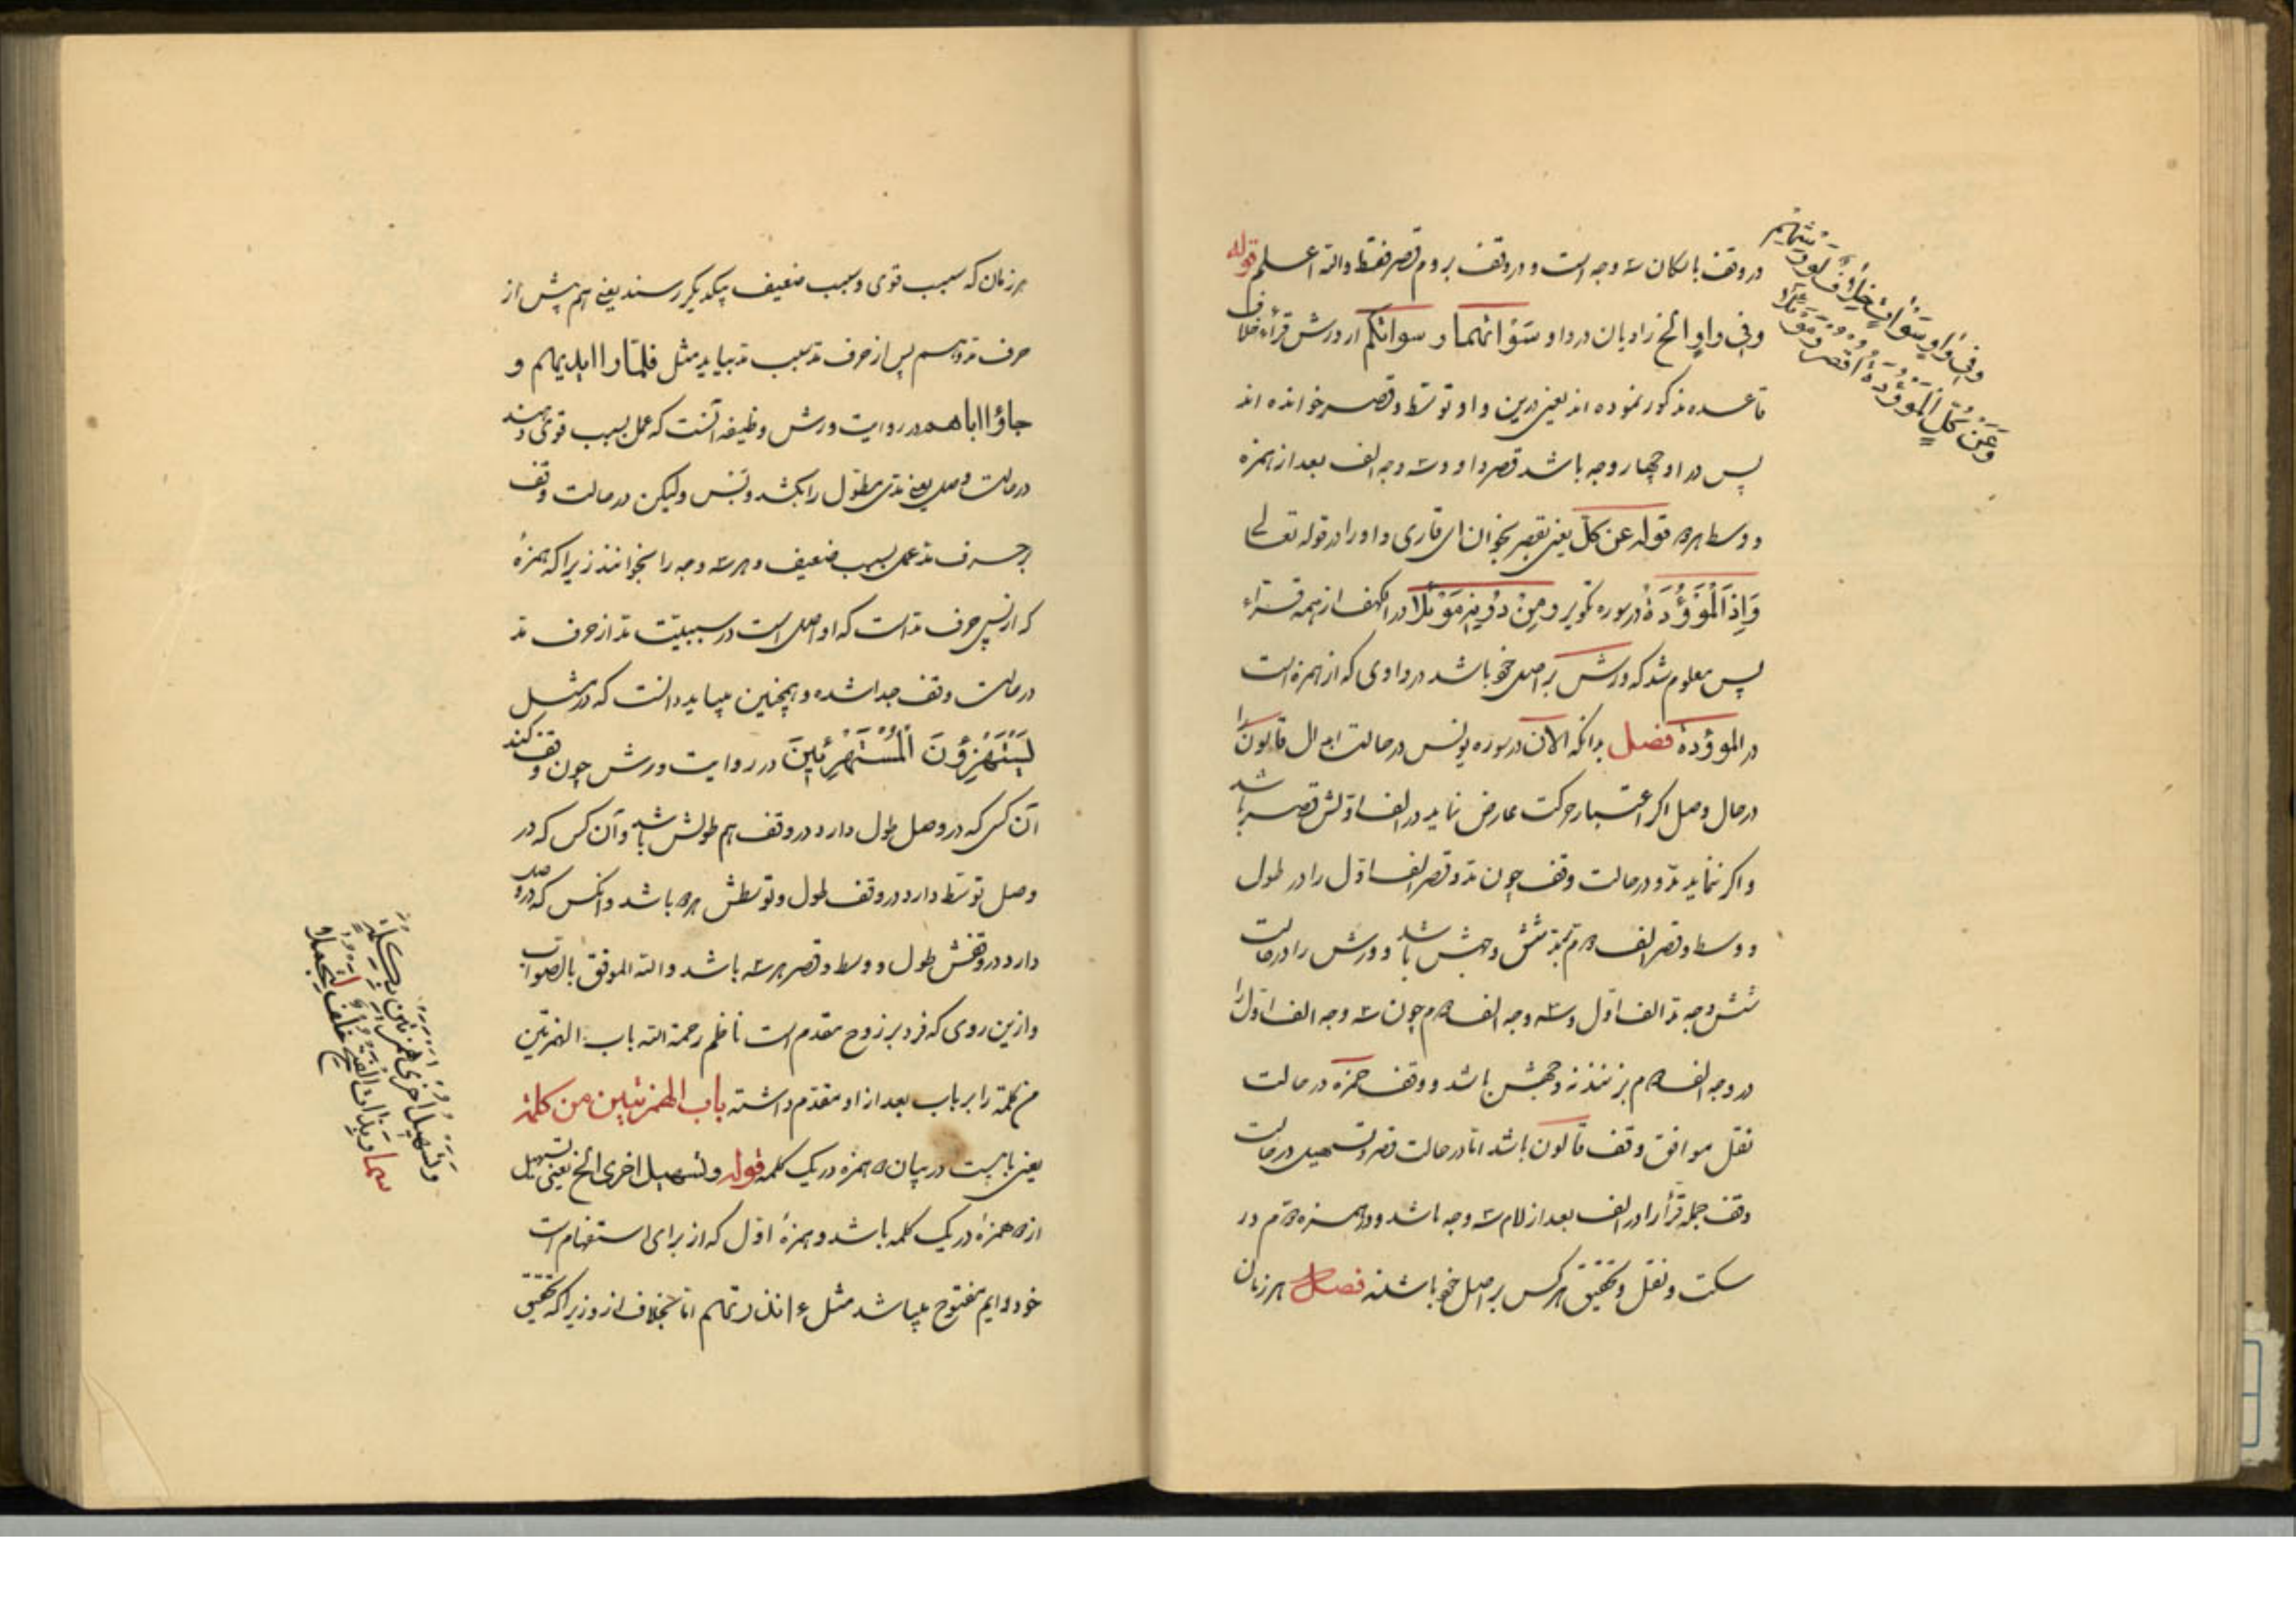 در وقف باسکان سه وجه است و در وقف بروم قصر فقط والله اعلم قوله
وفی واو الخ راویان در واو سَوْاتهما و سواتکم از ورش قرّاء خلاف
قاعده مذکور نموده اند یعنی درین واو توسّط و قصر خوانده اند
پس در او چهار وجه باشد قصر واو و سه وجه الف بعد از همزه
و وسط هر دو قوله عن کلّ یعنی بقصر بخوان ای قاری واو را در قوله تعالی
وَاِذَا الْمَوْؤُدَةُ در سوره تکویر و مِنْ دُوْنِهٖ مَوْئِلًا در الکهف از همه قرّاء
پس معلوم شد که ورش بر اصل خود باشد در واوی که از همزه است
در الموؤدة فصل بدانکه الآن در سوره یونس در حالت ابدال قالون را
در حال وصل اگر اعتبار حرکت عارض نماید در الف اوّلش قصر باشد
و اگر ننماید مدّ و در حالت وقف چون مدّ و قصر الف اوّل را در طول
و وسط و قصر الف دوم شش وجهش باشد و ورش را در حالت
شش وجه مدّ الف اوّل و سه وجه الف دوم چون سه وجه الف اوّل را
در وجه الف دوم بزنند نه وجهش باشد و وقف حمزه در حالت
نقل موافق وقف قالون باشد امّا در حالت قصر و تسهیل در حالت
وقف جمله قرّا را در الف بعد از لام سه وجه باشد و در همزه دوم در
سکت و نقل و تحقیق هرکس بر اصل خود باشند فصل هر زمان
وفِي وَاوِ سَوْاتٍ خِلَافٌ لِوَرْشِهِمْ
وَعَنْ كُلٍّ الْمَوْؤُدَةُ اقْصُرْ وَمَوْئِلَا
هر زمان که سبب قوی و سبب ضعیف بیکدیگر رسند یعنی هم پیش از
حرف مدّ و هم پس از حرف مدّ سبب مدّ بیاید مثل فلمّا را ایدیهم و
جاؤا اباهم در روایت ورش وظیفه آنست که عمل بسبب قوی دهند
در حالت وصل یعنی مدّ مطوّل را بکشد و بس ولیکن در حالت وقف
بر حرف مدّ عمل بسبب ضعیف و هر سه وجه را بخوانند زیرا که همزهٔ
که از پس حرف مدّ است که او اصل است در سببیّت مدّ از حرف مدّ
در حالت وقف جدا شده و همچنین میباید دانست که در مثل
یَسْتَهْزِؤُنَ الْمُسْتَهْزِئِینَ در روایت ورش چون وقف کند
آن کس که در وصل طول دارد در وقف هم طولش باشد و آن کس که در
وصل توسّط دارد در وقف طول و توسّطش هر دو باشد و آنکس که در وصل
دارد در وقفش طول و وسط و قصر هر سه باشد والله الموفق بالصواب
و ازین روی که فرد بر زوج مقدم است ناظم رحمة الله باب الهمزتین
من کلمة را بر باب بعد از او مقدّم داشته باب الهمزتین من کلمة
یعنی بابیست در بیان دو همزه در یک کلمه قوله وتسهیل اخری الخ یعنی تسهیل
از دو همزه در یک کلمه باشد و همزهٔ اوّل که از برای استفهام است
خود دایم مفتوح میباشد مثل ءانذرتهم امّا بخلاف از و زیرا که تحقیق
وَتَسْهِيلُ اُخْرٰى هَمْزَتَيْنِ بِكِلْمَةٍ
سَمَا وَبِذَاتِ الْفَتْحِ خُلْفٌ لِتَجْمُلَا